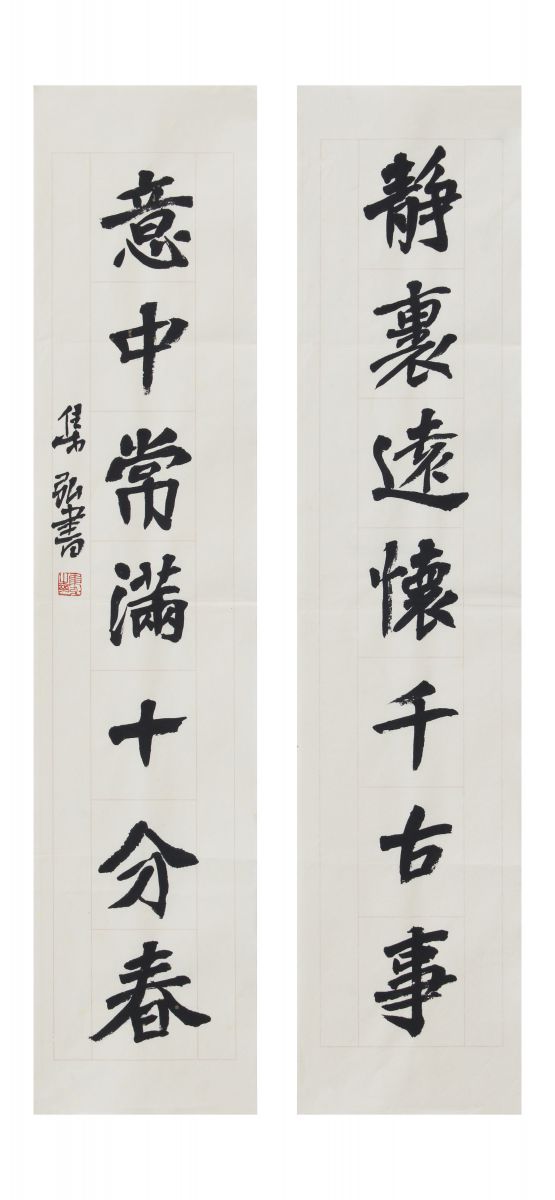 靜裏遠懷千古事
意中常滿十分春
集弘書